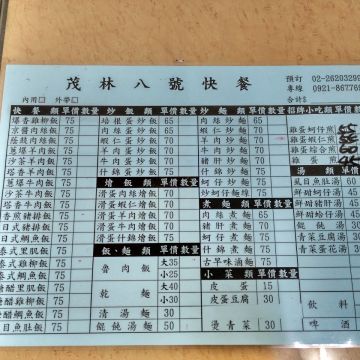 茂林八號快餐
內用□ 外帶□
預訂 02-2620329
專線 0921-86776
合計$
快餐類 單價 數量
塔香雞柳飯 75
京醬肉絲飯 75
蔥爆羊肉飯 75
沙茶羊肉飯 75
塔香羊肉飯 75
蔥爆牛肉飯 75
沙茶牛肉飯 75
香煎豬排飯 75
日式豬排飯 75
日式鯛魚飯 75
泰式里肌飯 75
泰式雞柳飯 75
泰式鯛魚飯 75
糖醋里肌飯 75
糖醋雞柳飯 75
糖醋鯛魚飯 75
虱目魚肚飯 75
炒飯類 單價 數量
培根蛋炒飯 65
肉絲蛋炒飯 65
蝦仁蛋炒飯 70
羊肉蛋炒飯 70
牛肉蛋炒飯 70
什錦蛋炒飯 70
燴飯類 單價 數量
滑蛋肉絲燴飯 70
滑蛋蝦仁燴飯 70
滑蛋羊肉燴飯 70
滑蛋牛肉燴飯 70
滑蛋什錦燴飯 70
飯、麵類 單價 數量
魯肉飯 大35
小25
乾麵 大40
小30
清湯麵 30
餛飩湯麵 50
炒麵類 單價 數量
肉絲炒麵 65
蝦仁炒麵 70
羊肉炒麵 70
牛肉炒麵 70
豬肝炒麵 70
什錦炒麵 70
蚵仔炒麵 70
炒蚵仔麵線 75
煮麵類 單價 數量
肉絲煮麵 65
海鮮煮麵 70
豬肝煮麵 70
什錦煮麵 70
古早味滷麵 50
小菜類 單價 數量
皮蛋 15
皮蛋豆腐 30
燙青菜 30
招牌小吃類 單價
雞蛋蚵仔煎
雞蛋蝦仁煎
雞蛋綜合煎
雞蛋煎
湯類 單價
虱目魚肚湯 60
鮮甜豬肝湯 45
鮮甜蛤仔湯 45
餛飩湯 30
青菜豆腐湯 30
青菜蛋花湯 30
飲料
啤酒